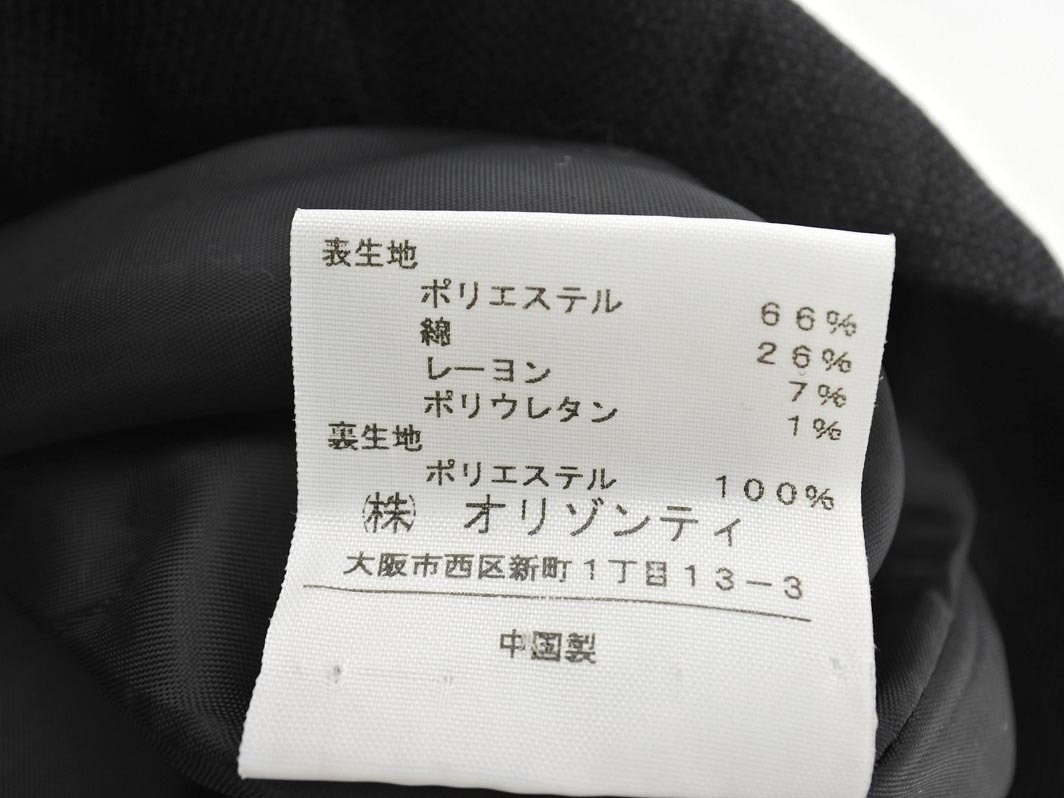 表生地
ポリエステル 66%
綿 26%
レーヨン 7%
ポリウレタン 1%
裏生地
ポリエステル 100%
㈱ オリゾンティ
大阪市西区新町1丁目13-3
中国製